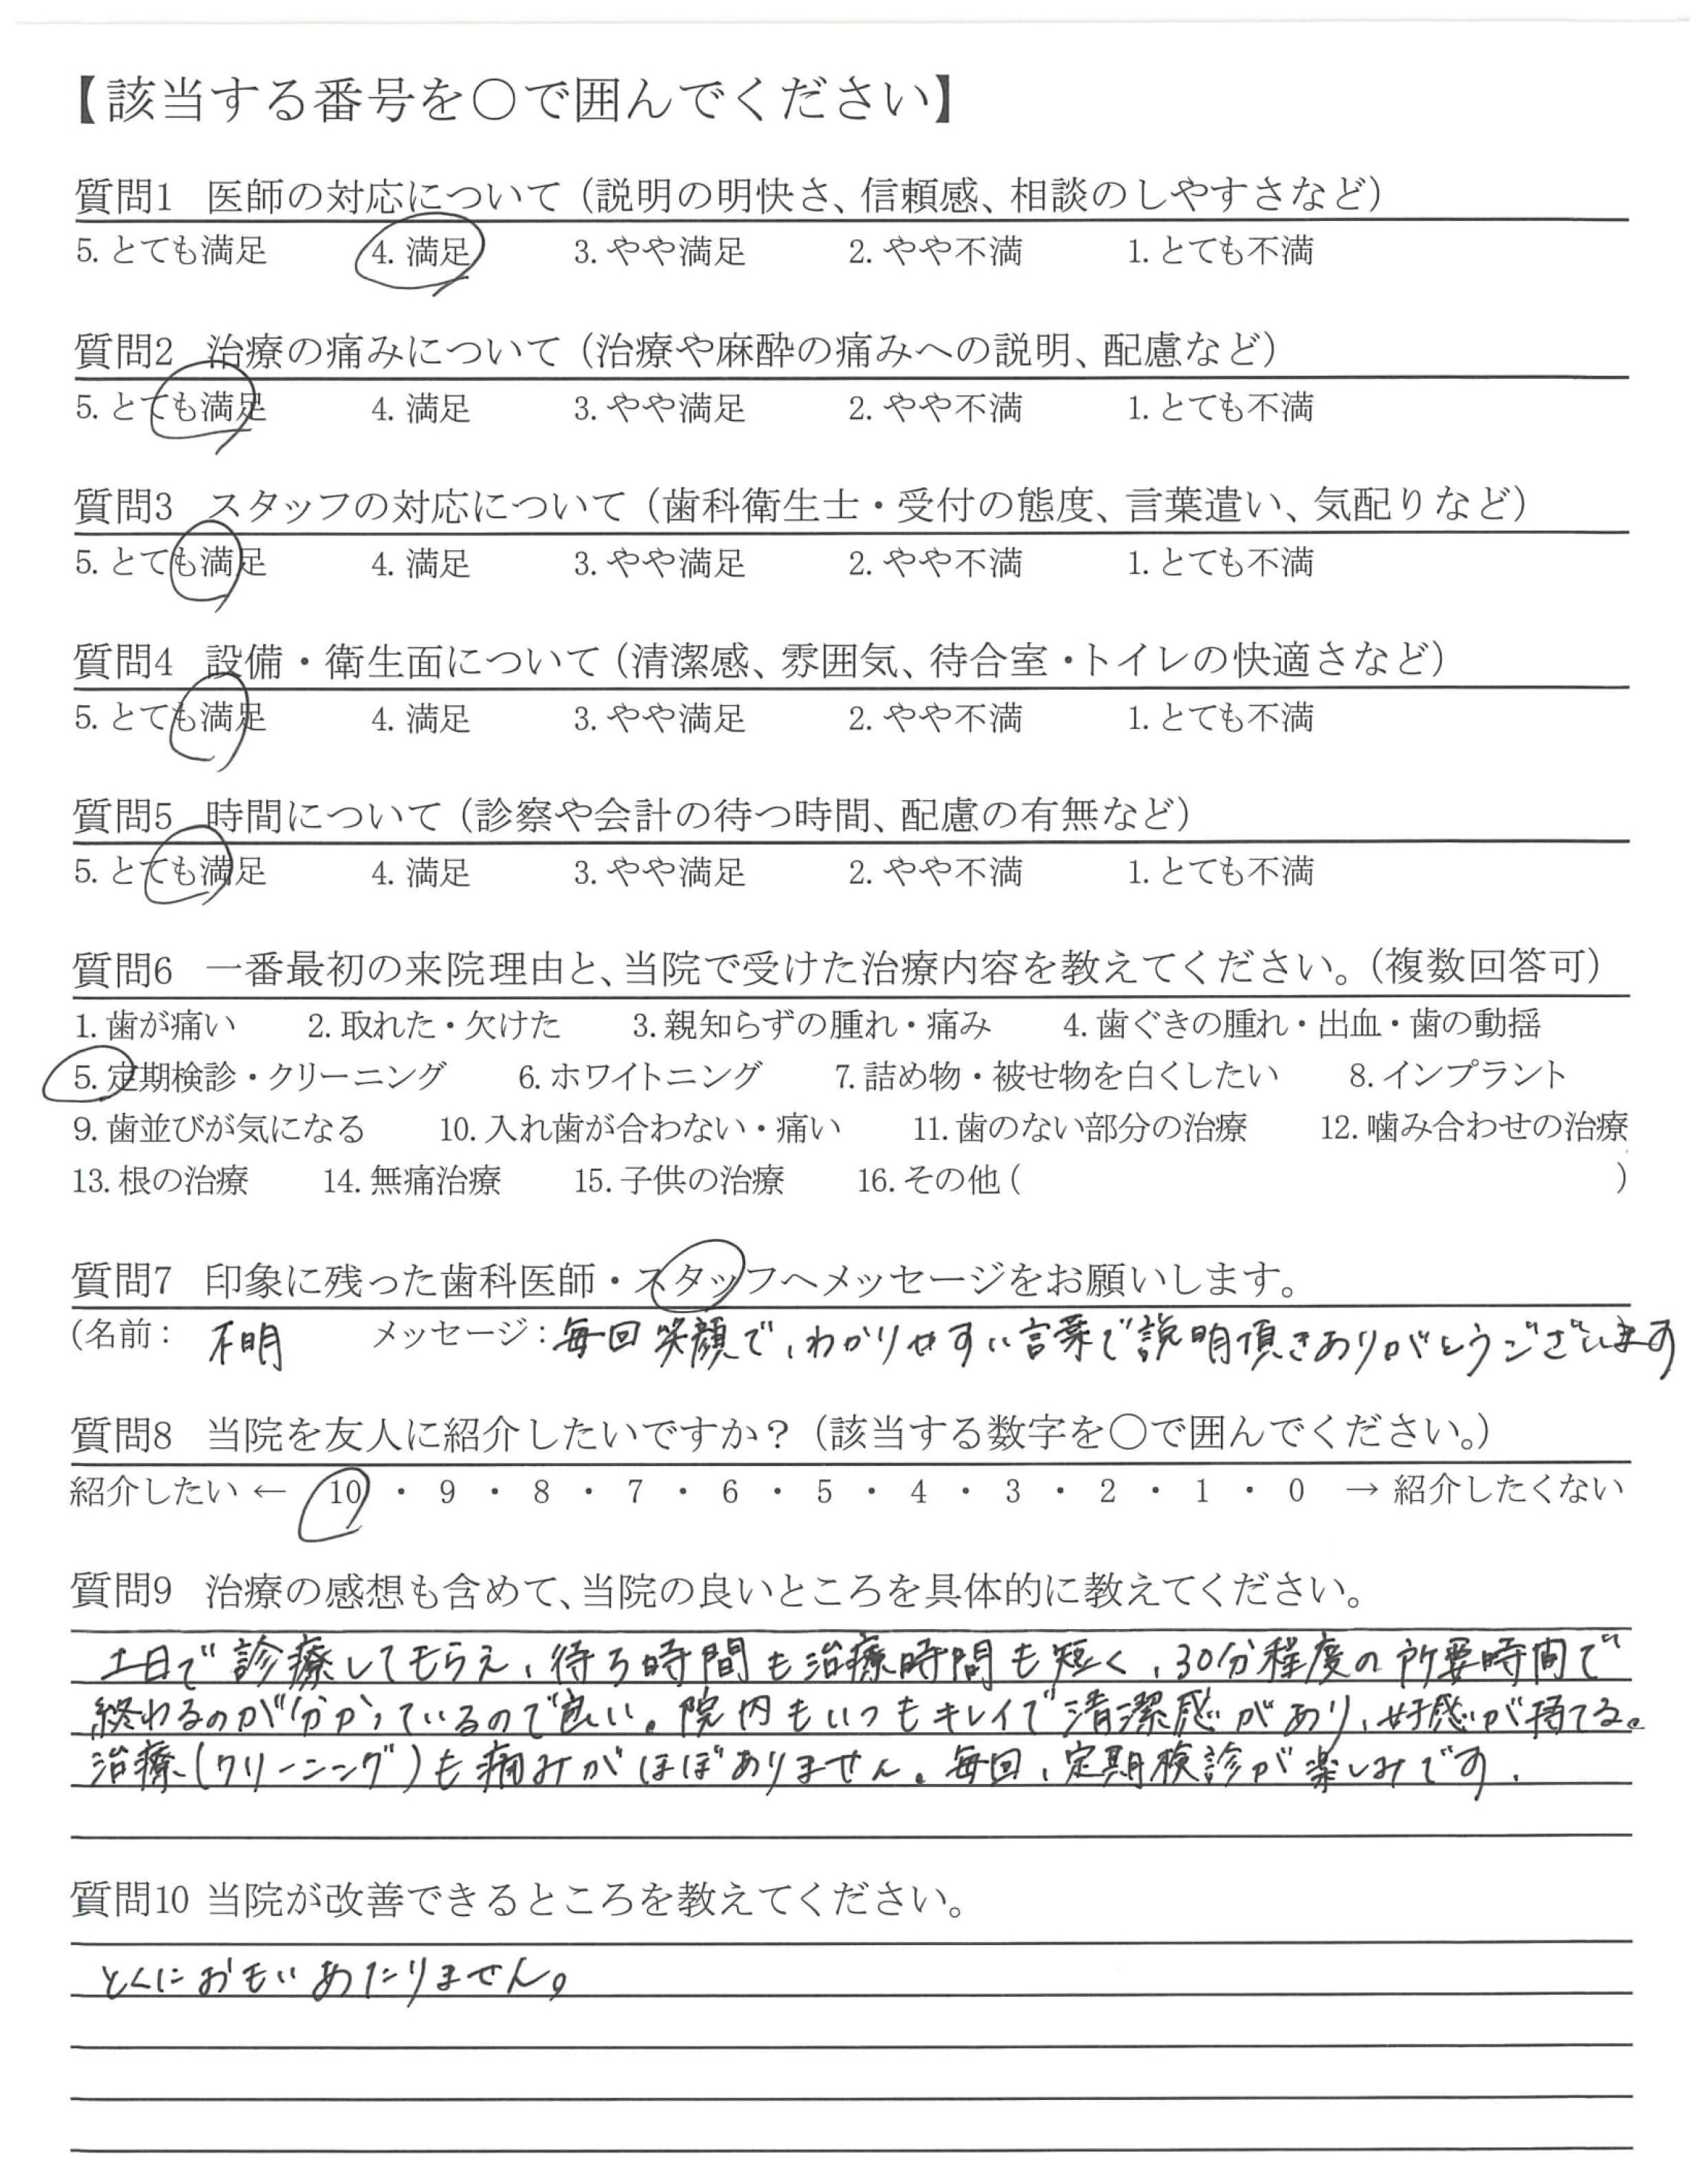 【該当する番号を○で囲んでください】
質問1 医師の対応について（説明の明快さ、信頼感、相談のしやすさなど）
5. とても満足 4. 満足 3. やや満足 2. やや不満 1. とても不満
質問2 治療の痛みについて（治療や麻酔の痛みへの説明、配慮など）
5. とても満足 4. 満足 3. やや満足 2. やや不満 1. とても不満
質問3 スタッフの対応について（歯科衛生士・受付の態度、言葉遣い、気配りなど）
5. とても満足 4. 満足 3. やや満足 2. やや不満 1. とても不満
質問4 設備・衛生面について（清潔感、雰囲気、待合室・トイレの快適さなど）
5. とても満足 4. 満足 3. やや満足 2. やや不満 1. とても不満
質問5 時間について（診察や会計の待つ時間、配慮の有無など）
5. とても満足 4. 満足 3. やや満足 2. やや不満 1. とても不満
質問6 一番最初の来院理由と、当院で受けた治療内容を教えてください。（複数回答可）
1. 歯が痛い 2. 取れた・欠けた 3. 親知らずの腫れ・痛み 4. 歯ぐきの腫れ・出血・歯の動揺
5. 定期検診・クリーニング 6. ホワイトニング 7. 詰め物・被せ物を白くしたい 8. インプラント
9. 歯並びが気になる 10. 入れ歯が合わない・痛い 11. 歯のない部分の治療 12. 噛み合わせの治療
13. 根の治療 14. 無痛治療 15. 子供の治療 16. その他 ( )
質問7 印象に残った歯科医師・スタッフへメッセージをお願いします。
（名前： 不明 メッセージ：毎回笑顔で、わかりやすい言葉で説明頂きありがとうございます
質問8 当院を友人に紹介したいですか？（該当する数字を○で囲んでください。）
紹介したい ← 10 ・ 9 ・ 8 ・ 7 ・ 6 ・ 5 ・ 4 ・ 3 ・ 2 ・ 1 ・ 0 → 紹介したくない
質問9 治療の感想も含めて、当院の良いところを具体的に教えてください。
土日で診療してもらえ、待ち時間も治療時間も短く、30分程度の所要時間で
終わるのが分かっているので良い。院内もいつもキレイで清潔感があり、好感が持てる。
治療（クリーニング）も痛みがほぼありません。毎回、定期検診が楽しみです.
質問10 当院が改善できるところを教えてください。
とくにおもいあたりません。